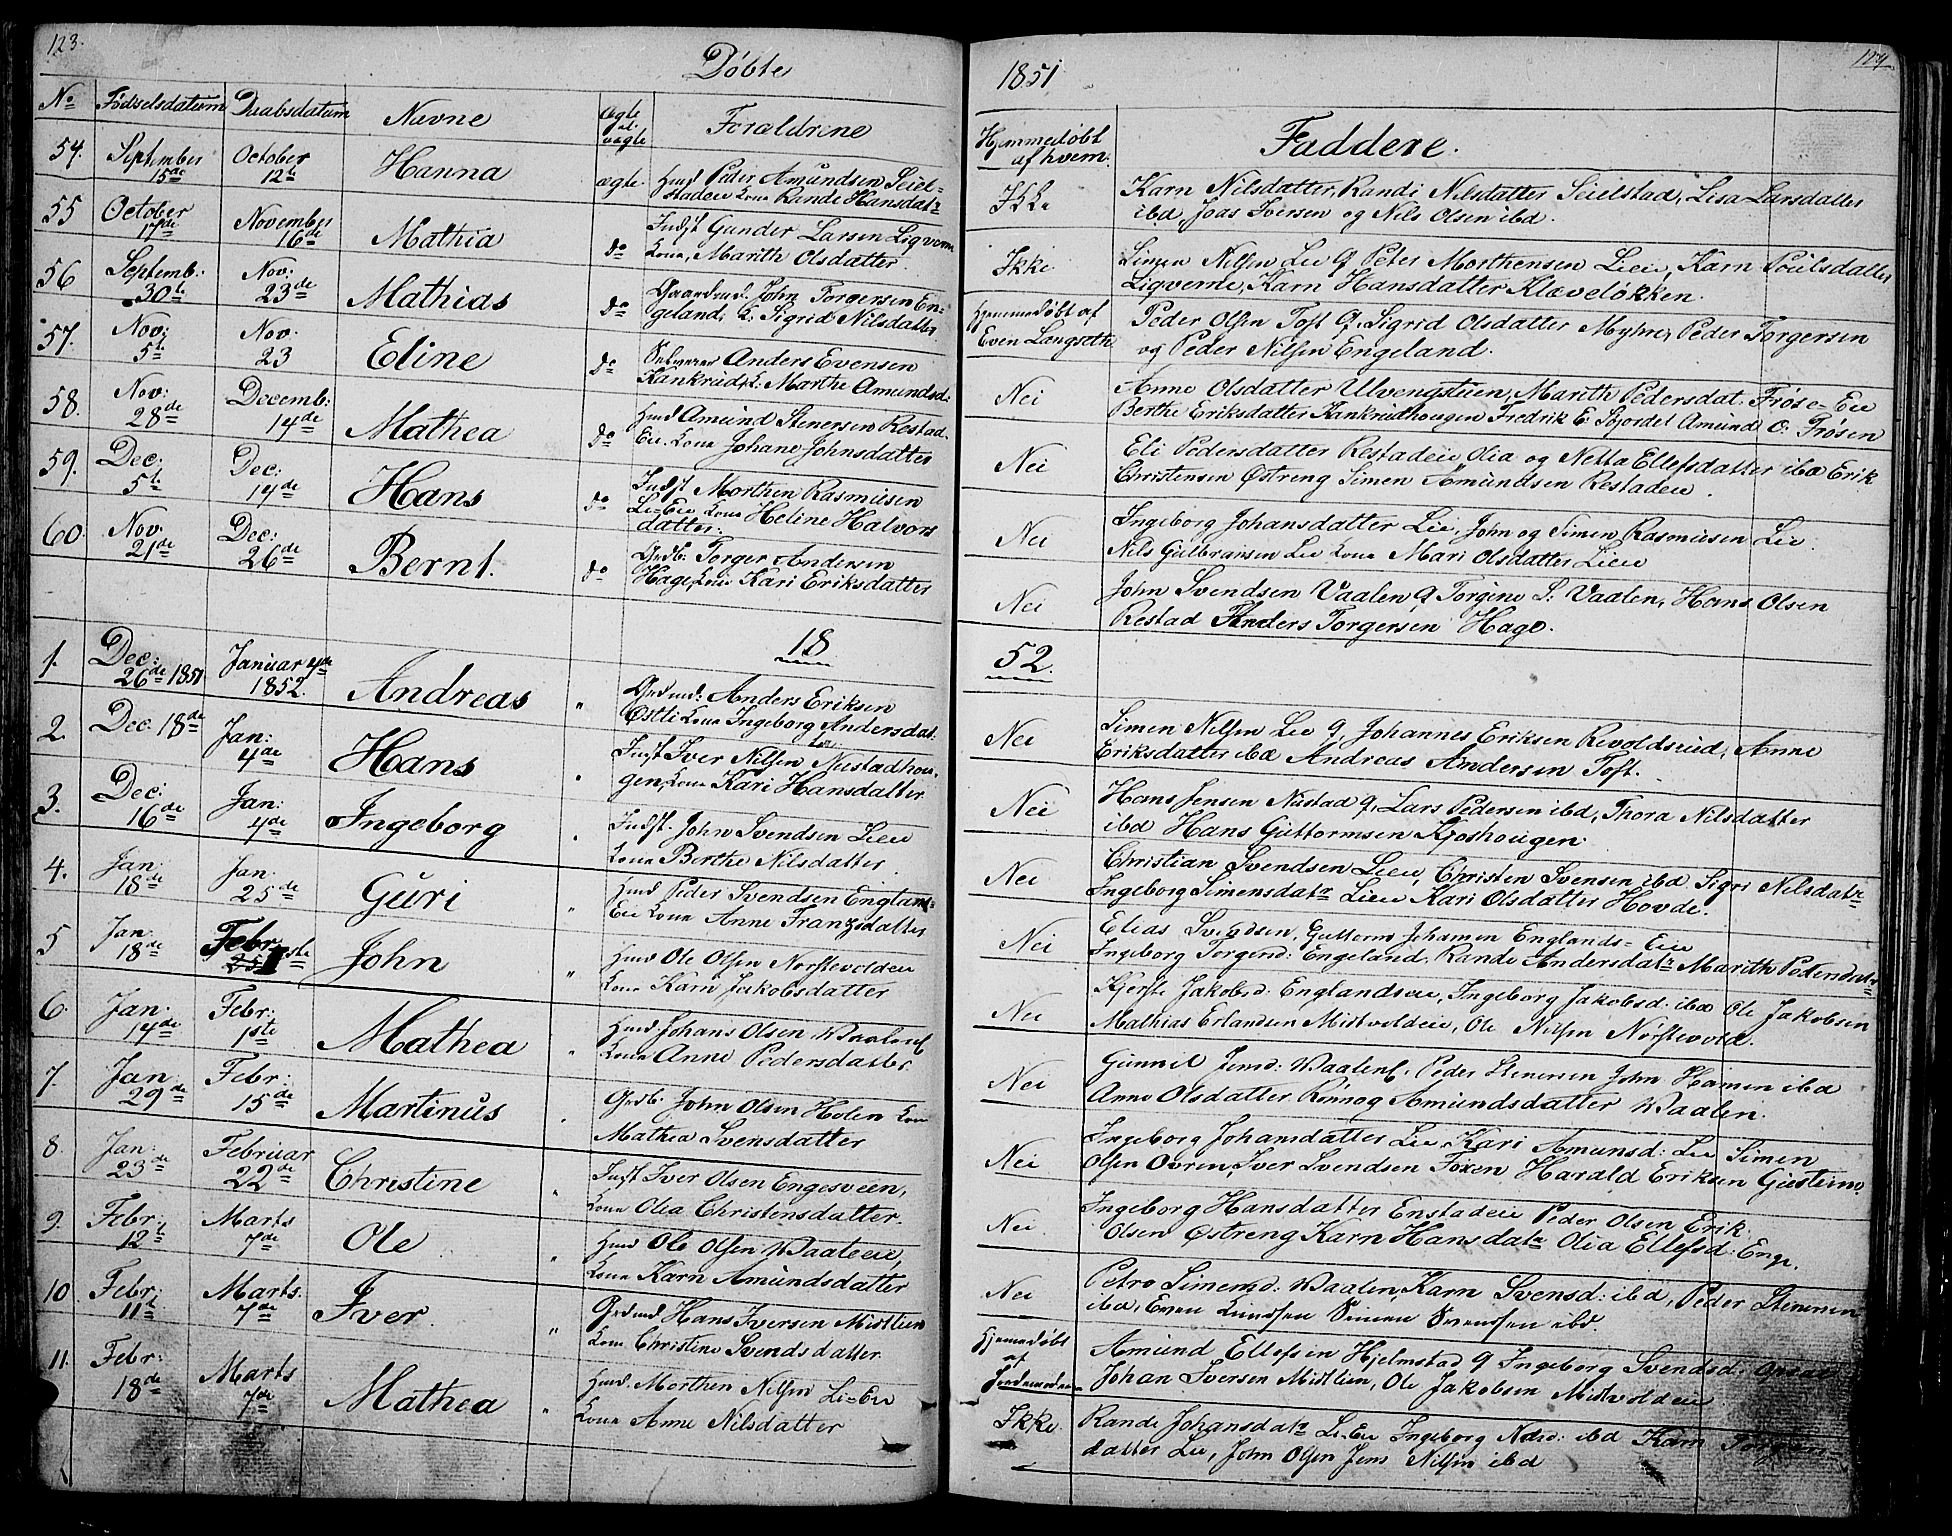 123.
Døbte
No Fødselsdatum Daabsdatum Navne Ægte el. uægte Forældrene
54. September 15de October 12te Hanna ægte. Huusd Peder Amundsen Seiel-
stadeie Kone Rande Hansdatr
55 October 17de November 16de Mathia do Indst Gunder Larsen Ligverne
Kone, Marith Olsdatter.
56 Septemb: 30te Nov: 23de Mathias do Gaardmd. John Torgersen En-
geland, K: Sigrid Nilsdatter
57. Nov: 5te Nov. 23 Eline do Anders Evensen
Kankrud, K: Marthe Amundsd.
58. Nov: 28de Decemb: 14de Mathea do Huusd Amund Stenersen Restad-
Eie. Kone Johane Johnsdatter
59. Dec: 5te Dec: 14de Hans do Indst Morthen Rasmusen
Li-Eie Kone Heline Halvors
datter.
60. Nov. 21de Dec: 26de Bernt. do Grdb: Torger Andersen
Hage, Kone Kari Eriksdatter
18
1. Dec: 26de 1851 Januar 4de 1852. Andreas " Grdmd: Anders Eriksen
Østli Kone Ingeborg Andersdat.
2. Dec. 18de Jan: 4de Hans " Indst Iver Nilsen Nustadhou-
gen, Kone Kari Hansdatter
3. Dec: 16de Jan: 4de Ingeborg " Indst. John Svendsen Lieie
Kone Berthe Nilsdatter
4. Jan: 18de Jan: 25de Guri " Huusd Peder Svendsen Englands
Eie Kone Anne Frantzsdatter
5 Jan: 18de Febr: 1ste John " Huusd Ole Olsen Norstevoldeie
Kone Karn Jakobsdatter
6. Jan: 14de Febr: 1ste Mathea " Huusd Johans Olsen
Kone Anne Pedersdatter
7. Jan: 29de Febr: 15de Martinus " Grdb: John Olsen Holen Kone
Mathea Svensdatter
8. Jan: 23de Februar 22de Christine " Indst Iver Olsen Engesveen,
Kone Olia Christensdatter.
9. Febr: 12te Marts 7de Ole " Huusd Ole Olsen Waaleeie,
Kone Karn Amundsdatter
10 Febr: 11te Marts. 7de Iver. " Grdmd Hans Iversen Midtlien
Kone Christine Svendsdatter
11. Febr: 18de Marts 7de Mathea " Huusd. Morthen Nilsen Li-Eie
Kone Anne Nilsdatter
1851
124
Hjemmedøbt af hvem. Faddere.
Ikke Karn Nilsdatter, Randi Nilsdatter Seielstad, Lisa Larsdatter
ibd, Joas Iversen og Nils Olsen ibd.
Ikke Simen Nilsen Lie G. Peter Morthensen Lieie, Karn Poulsdatter
Ligverne, Karn Hansdatter Klæveløkken.
Hjemmedøbt af Even Langseth Peder Olsen Toft G. Sigrid Olsdatter Myhre, Peder Torgersen
og Peder Nilsen Engeland.
Nei Anne Olsdatter Ulvengstuen, Marith Pedersdat: Frøse-Eie
Berthe Eriksdatter Kankrudhougen Fredrik E. Amund O: Frøsen
Nei Eli Pedersdatter Restadeie Olia og Netta Ellefsdatter ibd Erik
Christensen Østreng Simen Amundsen Restadeie.
Nei Ingeborg Johansdatter Lie, John og Simen Rasmusen Lie.
Nils Gulbransen Lie Kone Mari Olsdatter Lieie
Nei John Svendsen Vaalen, G. Torgine S: Vaalen, Hans Olsen
Restad Anders Torgersen Hage.
52.
Nei Simen Nilsen Lie G, Johannes Eriksen Rivoldsrud, Anne
Eriksdatter ibd Andreas Andersen Toft.
Nei Hans Jensen Nustad G. Lars Pedersen ibd, Thora Nilsdatter
ibd Hans Guttormsen Kjoshougen
Nei Christian Svendsen Lieie, Christen Svensen ibd Sigri Nilsdatr
Ingeborg Simensdatr Lieie Kari Olsdatter Hovde.
Nei Elias Svendsen, Guttorm Johansen Englands-Eie
Ingeborg Torgersd: Engeland, Rande Andersdatr Marith Pedersdatr
Nei Kjerste Jakobsd: Englandseie, Ingeborg Jakobsd: ibd Ole Jakobsen
Mathias Erlandsen Midtvoldeie, Ole Nilsen Nørstevold.
Nei Gunnil Peder Stenersen John Hansen ibd
Anne Olsdatter Rønnog Amundsdatter Waalen.
Nei Ingeborg Johansdatter Lie, Kari Amunsd: Lie Simen
Olsen Ovren, Iver Svendsen Foxen Harald Eriksen
Nei Ingeborg Hansdatter Enstadeie Peder Olsen Erik
Olsen Østreng Karn Hansdatr Olia Ellefsd: Enge.
Nei Petro Simensd: Waalen, Karn Svensd: ibd, Peder Stenersen
ibd, Even Knudsen Simen Svendsen ibd.
Hjemmedøbt af Amund Ellefsen Hjelmstad G Ingeborg Svendsd:
Johan Iversen Midtlien, Ole Jakobsen Midtvoldeie
Ikke Rande Johansdatr Li-Eie Ingeborg ibd Karn
datter Lie, John Olsen Jens Nilsen ibd